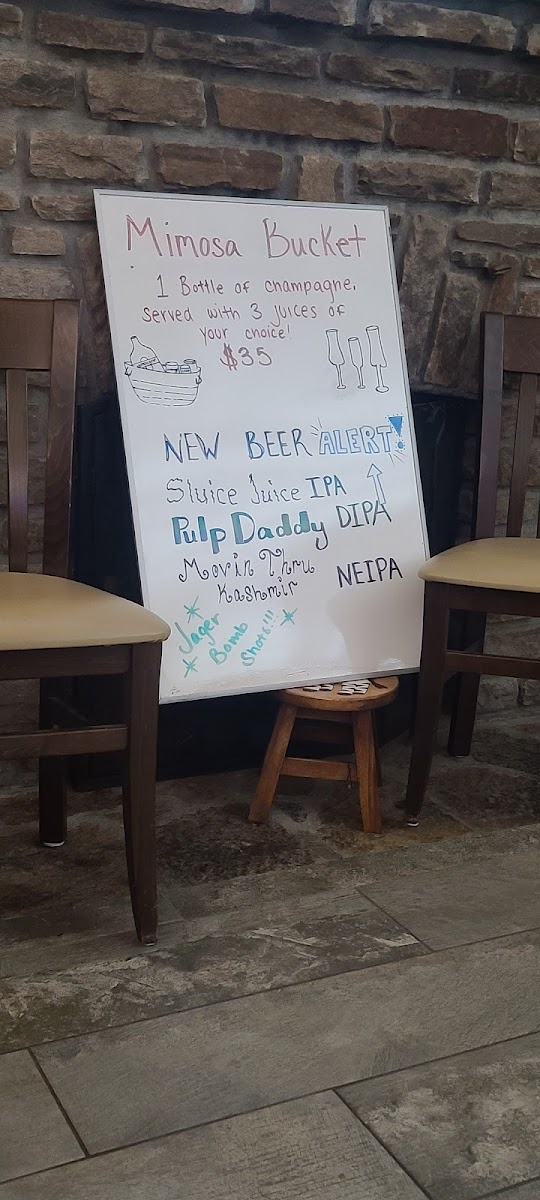 Mimosa Bucket
1 Bottle of champagne,
served with 3 juices of
your choice!
$35
NEW BEER ALERT!
Sluice Juice IPA
Pulp Daddy DIPA
Movin Thru
Kashmir NEIPA
Jager
Bomb
Shots!!!